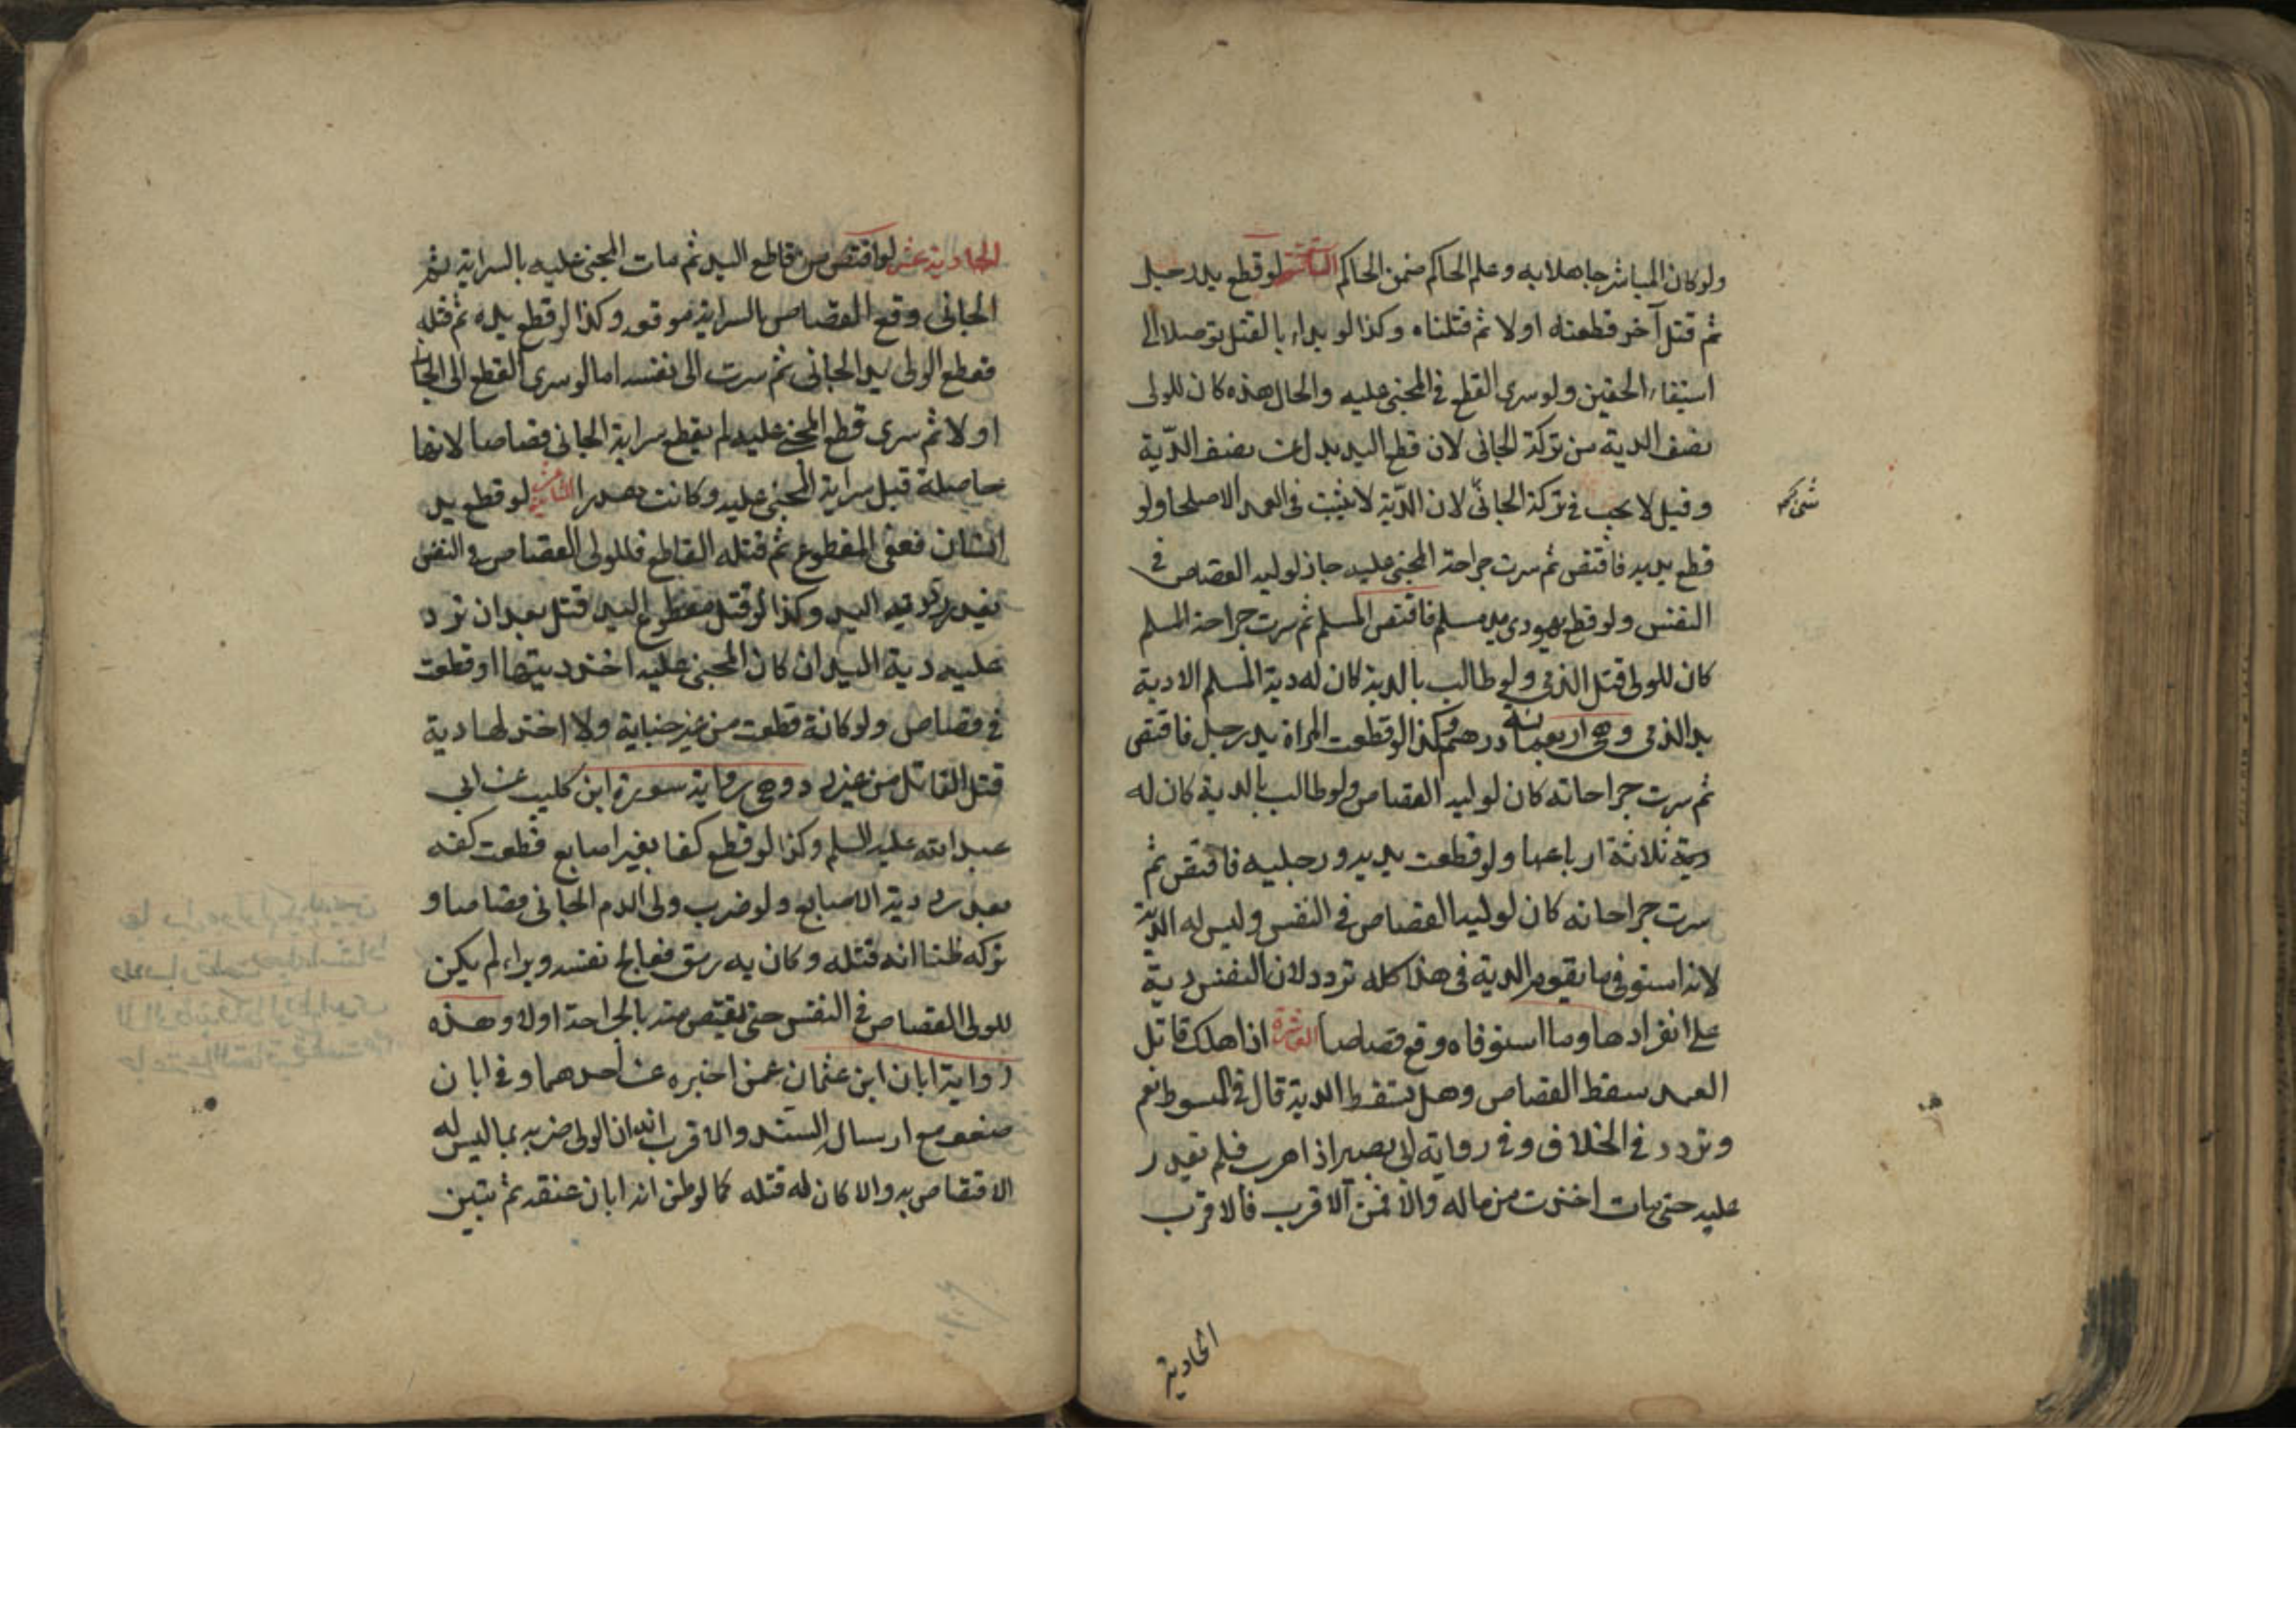 ولو كان المباشر جاهلا به وعلم الحاكم ضمن الحاكم التاسعة لو قطع يد رجل
ثم قتل آخر قطعناه اولا ثم قتلناه وكذا لو بداء بالقتل توصلا الى
استيفاء الحقين ولو سرى القطع في المجنى عليه والحال هذه كان للولى
نصف الدية من تركة الجانى لان قطع اليد بدل عن نصف الدّية
وقيل لا يجب في تركة الجانىّ لان الدّية لا تثبت في العمد الا صلحا ولو
قطع يديه فاقتص ثم سرت جراحة المجنى عليه جاز لوليه القصاص في
النفس ولو قطع يهودى يد مسلم فاقتص المسلم ثم سرت جراحة المسلم
كان للولى قتل الذمي ولو طالب بالدية كان له دية المسلم الا دية
يد الذمى وهي اربعمائة درهم وكذا لو قطعت المراة يد رجل فاقتص
ثم سرت جراحاته كان لوليه القصاص ولو طالب بالدية كان له
دية ثلاثة ارباعها ولو قطعت يديه ورجليه فاقتص ثم
سرت جراحاته كان لوليه القصاص في النفس وليس له الدية
لانه استوفى ما يقوم الدية في هذا كله تردد لان للنفس دية
على انفرادها وما استوفاه وقع قصاصا العاشرة اذا هلك قاتل
العمد سقط القصاص وهل يسقط الدية قال في المبسوط نعم
وتردد في الخلاف وفي رواية ابى بصير اذا هرب فلم يقدر
عليه حتى مات اخذت من ماله والا فمن الاقرب فالاقرب
الحادية
الحادية عشر لو اقتص من قاطع اليد ثم مات المجنى عليه بالسراية ثم
الجانى وقع القصاص بالسراية موقعه وكذا لو قطع يده ثم قتله
فقطع الولى يد الجانى ثم سرت الى نفسه اما لو سرى القطع الى الجانى
اولا ثم سرى قطع المجنى عليه لم يقع سراية الجانى قصاصا لانها
حاصلة قبل سراية المجنى عليه وكانت هدرا الثانية عشر لو قطع يد
انسان فعفى المقطوع ثم قتله القاطع فللولى القصاص في النفس
بعد رد دية اليد وكذا لو قتل مقطوع اليد قتل بعد ان ترد
عليه دية اليد ان كان المجنى عليه اخذ ديتها او قطعت
في قصاص ولو كانة قطعت من غير جناية ولا اخذ لها دية
قتل القاتل من غير رد وهي رواية سورة ابن كليب عن ابي
عبد الله عليه السلم وكذا لو قطع كفا بغير اصابع قطعت كفه
بعد رد دية الاصابع ولو ضرب ولى الدم الجانى قصاصا و
تركه ظنا انه قتله وكان به رمق فعالج نفسه وبراء لم يكن
للولى القصاص في النفس حتى يقتص منه بالجراحة اولا وهذه
رواية ابان ابن عثمان عمن اخبره عن احدهما وفي ابان
ضعف مع ارسال السند والاقرب انه ان الولى ضربه بما ليس له
الاقتصاص به والا كان له قتله كما لو ظن انه ابان عنقه ثم تبين